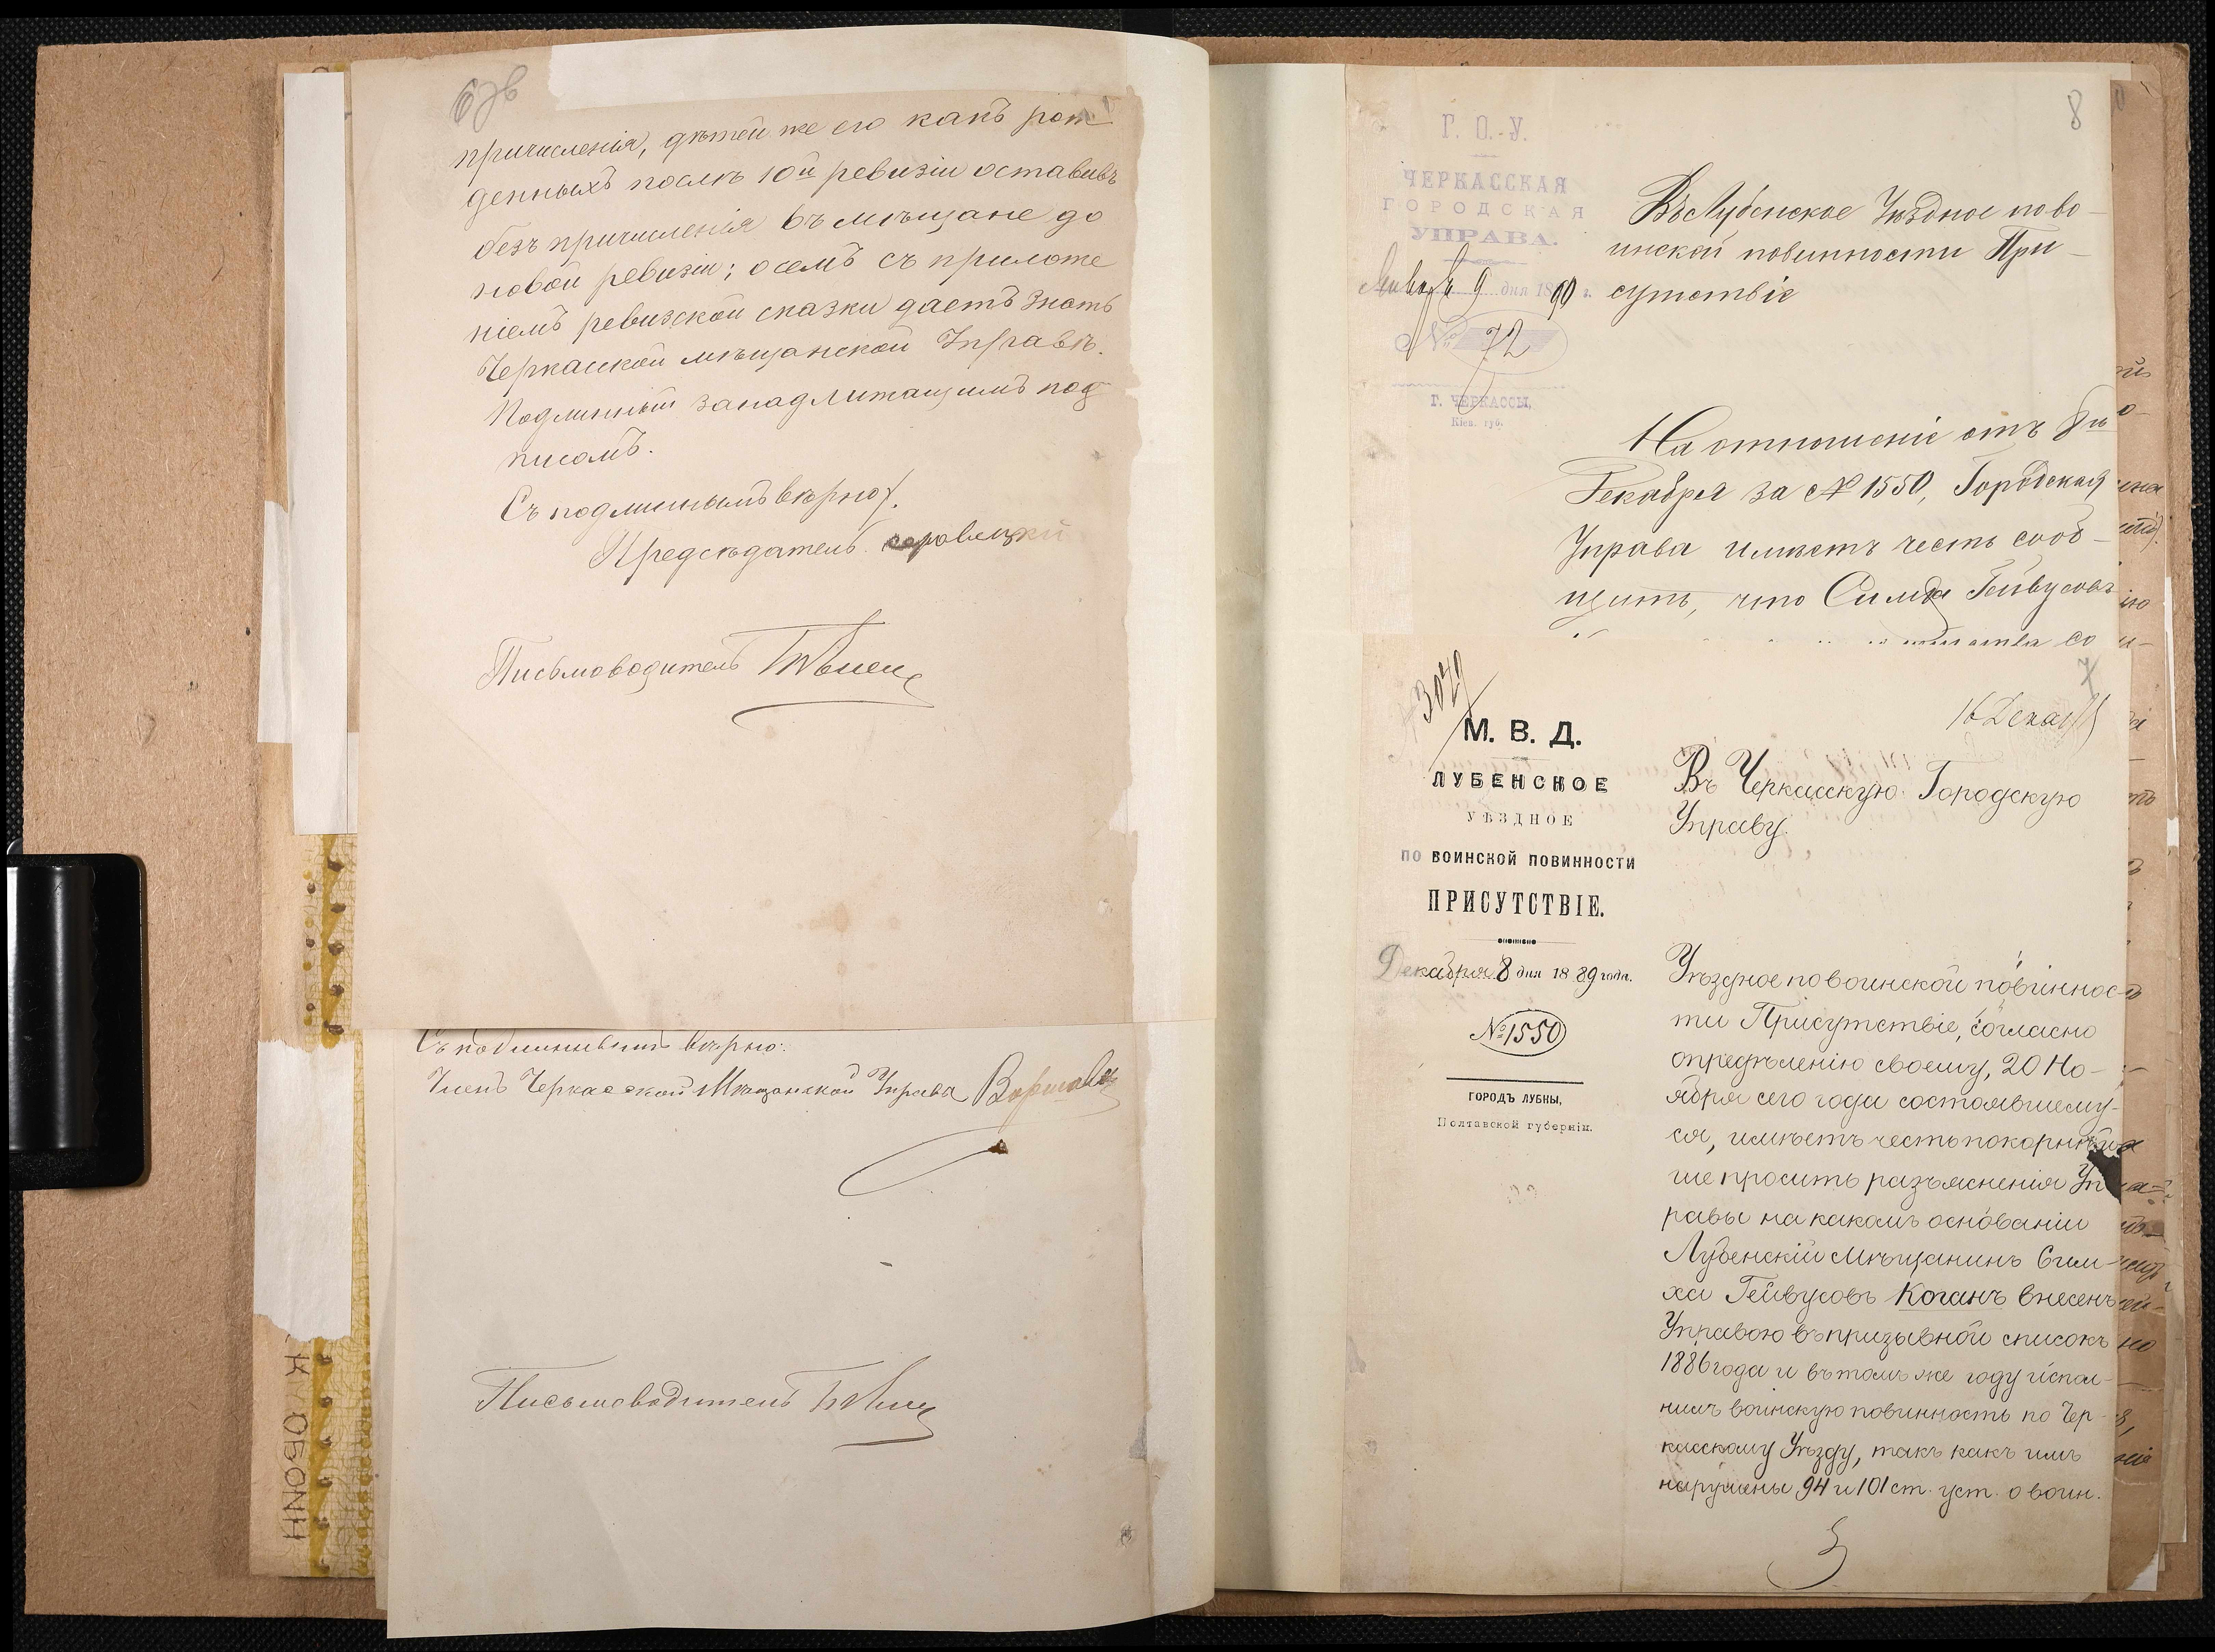 причисленія, дѣтей же его какъ рож
денныхъ послѣ 10й ревизіи оставивъ
безъ причисленія въ мѣщане до
новой ревизіи; о семъ съ приложе
ніемъ ревизской сказки даетъ знать
Черкасской мѣщанской Управѣ.
Подлинный за надлежащимъ под
писомъ.
Съ подлиннымъ вѣрно
Предсѣдатель
Письмоводитель
Съ подлиннымъ вѣрно:
Членъ Черкасской Мѣщанской Управы
Письмоводитель
8
Г. О. У.
ЧЕРКАССКАЯ
ГОРОДСКАЯ
УПРАВА.
Января 9 дня 1890 г.
№ 72
Г. ЧЕРКАССЫ,
Кіев. губ.
Въ Лубенское Уѣздное по во-
инской повинности При-
сутствіе
На отношеніе отъ 8го
Декабря за № 1550, Городская
Управа имѣетъ честь сооб-
щить, что Симха Гейвусовъ
7
3029
М. В. Д.
ЛУБЕНСКОЕ
УѢЗДНОЕ
ПО ВОИНСКОЙ ПОВИННОСТИ
ПРИСУТСТВІЕ.
Декабря 8 дня 1889 года.
№ 1550
ГОРОДЪ ЛУБНЫ,
Полтавской губерніи.
16 Декаб
Въ Черкасскую Городскую
Управу.
Уѣздное по воинской повиннос-
ти Присутствіе, согласно
опредѣленію своему, 20 Но-
ября сего года состоявшему-
ся, имѣетъ честь покорнѣй-
ше просить разъясненія Уп
равы на какомъ основаніи
Лубенскій Мѣщанинъ Сим-
ха Гейвусовъ Коганъ внесенъ
Управою въ призывной списокъ
1886 года и въ томъ же году испол-
нилъ воинскую повинность по Чер-
касскому Уѣзду, такъ какъ имъ
нарушены 94 и 101 ст. уст. о воин.